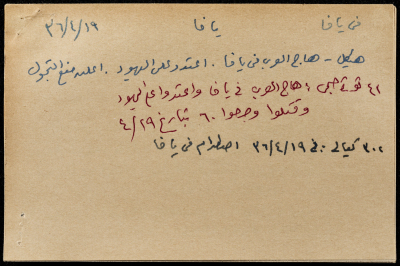 في يافا يافا ٣٦/٤/١٩
هيكل - هاج العرب في يافا . اعتدو على اليهود . اعلنه منع التجول
هاج العرب في يافا واعتدوا على اليهود
وقتلوا وجرحوا ٦٠ بتاريخ ٤/١٩
٣٠٢ كيالي في ٣٦/٤/١٩ اصطدام في يافا